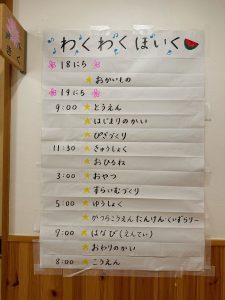 わくわくほいく
18にち
★おかいもの
19にち
9:00 ★とうえん
★はじまりのかい
★ぴざづくり
11:30 ★きゅうしょく
★おひるね
3:00 ★おやつ
★すらいむづくり
5:00 ★ゆうしょく
★かつらこうえんたんけん・くいずらりー
7:00 ★はなび(えんてい)
★おわりのかい
8:00 ★こうえん